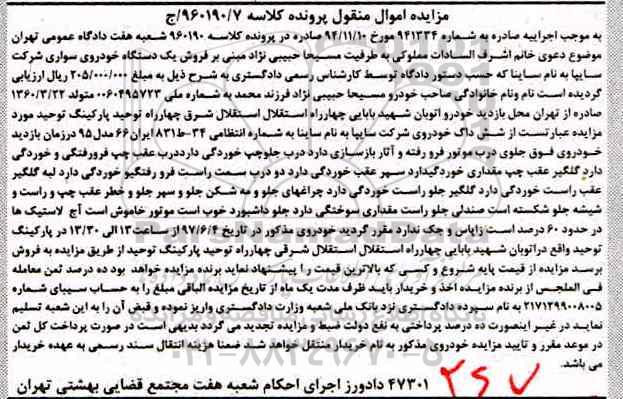 مزایده اموال منقول پرونده کلاسه ۹۶۰۱۹۰/۷/ج
به موجب اجراییه صادره به شماره ۹۴۱۳۳۴ مورخ ۹۴/۱۱/۱۰ صادره در پرونده کلاسه ۹۶۰۱۹۰ شعبه هفت دادگاه عمومی تهران
موضوع دعوی خانم اشرف السادات مملوکی به طرفیت مسیحا حبیبی نژاد مبنی بر فروش یک دستگاه خودروی سواری شرکت
سایپا به نام ساینا که حسب دستور دادگاه توسط کارشناس رسمی دادگستری به شرح ذیل به مبلغ ۲۰۵/۰۰۰/۰۰۰ ریال ارزیابی
گردیده است نام ونام خانوادگی صاحب خودرو مسیحا حبیبی نژاد فرزند محمد به شماره ملی ۰۰۶۰۴۹۵۷۲۳ متولد ۱۳۶۰/۳/۲۲
صادره از تهران محل بازدید خودرو اتوبان شهید بابایی چهارراه استقلال استقلال شرق چهارراه توحید پارکینگ توحید مورد
مزایده عبارتست از شش داگ خودروی شرکت سایپا به نام ساینا به شماره انتظامی ۳۴-ط۸۳۱ ایران۶۶ مدل۹۵ درزمان بازدید
خودروی فوق جلوی درب موتور فرو رفته و آثار بازسازی دارد درب جلوچپ خوردگی دارددرب عقب چپ فرورفتگی و خوردگی
دارد گلگیر عقب چپ مقداری خوردگیدارد سپر عقب خوردگی دارد دو درب سمت راست فرو رفتگیو خوردگی دارد لبه گلگیر
عقب راست خوردگی دارد گلگیر جلو راست خوردگی دارد چراغهای جلو و مه شکن جلو و سپر جلو و خطر عقب چپ و راست و
شیشه جلو شکسته است صندلی جلو راست مقداری سوختگی دارد جلو داشبورد خوب است موتور خاموش است آج لاستیک ها
در حدود ۶۰ درصد است زاپاس و جک ندارد مقرر گردید خودروی مذکور در تاریخ ۹۷/۶/۴ از ساعت۱۳الی ۱۳/۳۰ در پارکینگ
توحید واقع دراتوبان شهید بابایی چهارراه استقلال استقلال شرقی چهارراه توحید پارکینگ توحید از طریق مزایده به فروش
برسد مزایده از قیمت پایه شروع و کسی که بالاترین قیمت را پیشنهاد نماید برنده مزایده خواهد بود ده درصد ثمن معامله
فی المجلس از برنده مزایده اخذ و خریدار باید ظرف مدت یک ماه از تاریخ مزایده الباقی مبلغ را به حساب سیبای شماره
۲۱۷۱۲۹۹۰۰۸۰۰۵ به نام سپرده دادگستری نزد بانک ملی شعبه وزارت دادگستری واریز نموده و قبض آن را به این شعبه تسلیم
نماید در غیر اینصورت ده درصد پرداختی به نفع دولت ضبط و مزایده تجدید می گردد بدیهی است در صورت پرداخت کل ثمن
در موعد مقرر و تایید مزایده خودروی مذکور به نام خریدار منتقل خواهد شد ضمنا هزینه انتقال سند رسمی به عهده خریدار
می باشد.
۴۷۳۰۱ دادورز اجرای احکام شعبه هفت مجتمع قضایی بهشتی تهران
۲۶۷
۰۲۱-۸۸۳۴۹۶۷۰-۵